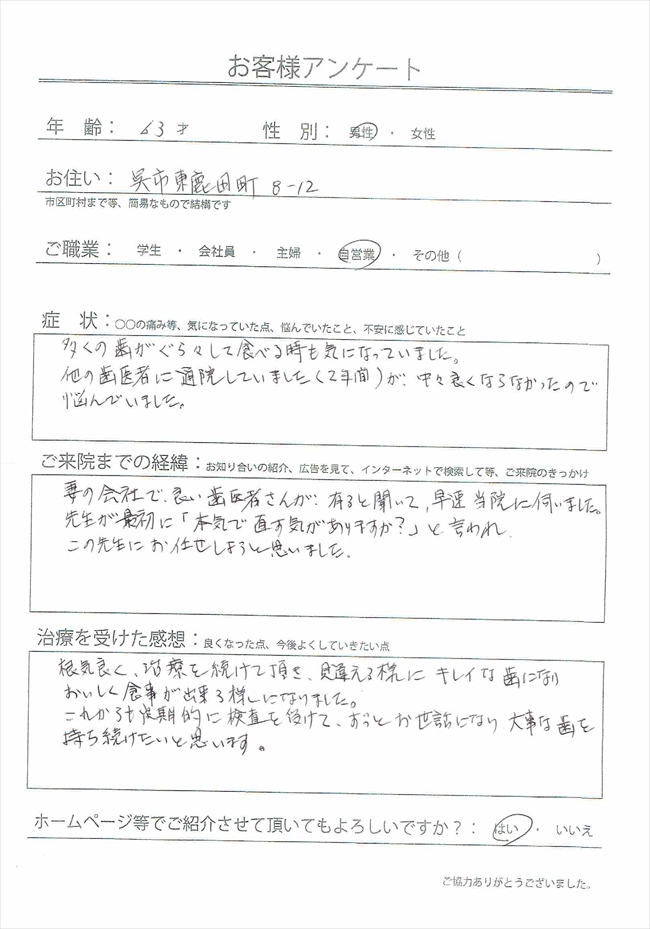 お客様アンケート
年 齢： 63才 性 別： 男性 ・ 女性
お住い： 呉市東鹿田町 8-12
市区町村まで等、簡易なもので結構です
ご職業： 学生 ・ 会社員 ・ 主婦 ・ 自営業 ・ その他（ ）
症 状：○○の痛み等、気になっていた点、悩んでいたこと、不安に感じていたこと
多くの歯がぐら々して食べる時も気になっていました。
他の歯医者に通院していました（2年間）が、中々良くならなかったので
悩んでいました。
ご来院までの経緯：お知り合いの紹介、広告を見て、インターネットで検索して等、ご来院のきっかけ
妻の会社で、良い歯医者さんが、有ると聞いて、早速当院に伺いました。
先生が最初に「本気で直す気がありますか？」と言われ
この先生にお任せしようと思いました。
治療を受けた感想：良くなった点、今後よくしていきたい点
根気良く、治療を続けて頂き、見違える様に キレイな歯になり
おいしく食事が出来る様になりました。
これからも定期的に検査を受けて、ずっとお世話になり 大事な歯を
持ち続けたいと思います。
ホームページ等でご紹介させて頂いてもよろしいですか？： はい ・ いいえ
ご協力ありがとうございました。